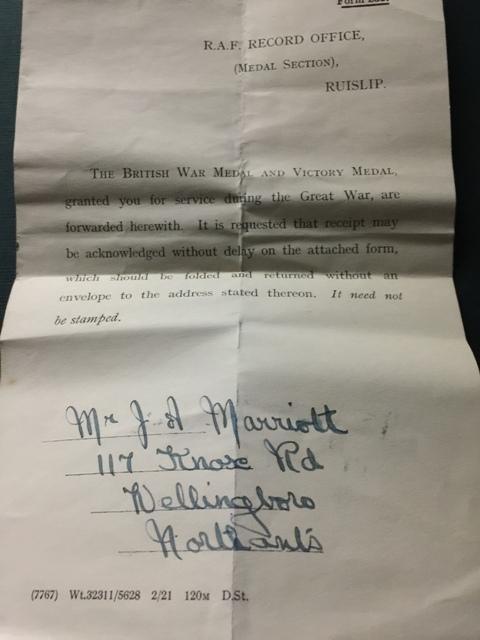 R.A.F. RECORD OFFICE,
(MEDAL SECTION),
RUISLIP.
THE BRITISH WAR MEDAL AND VICTORY MEDAL,
granted you for service during the Great War, are
forwarded herewith. It is requested that receipt may
be acknowledged without delay on the attached form,
which should be folded and returned without an
envelope to the address stated thereon. It need not
be stamped.
Mr J. A Marriott
117 Knox Rd
Wellingboro
Northants
(7767) Wt.32311/5628 2/21 120M D.St.